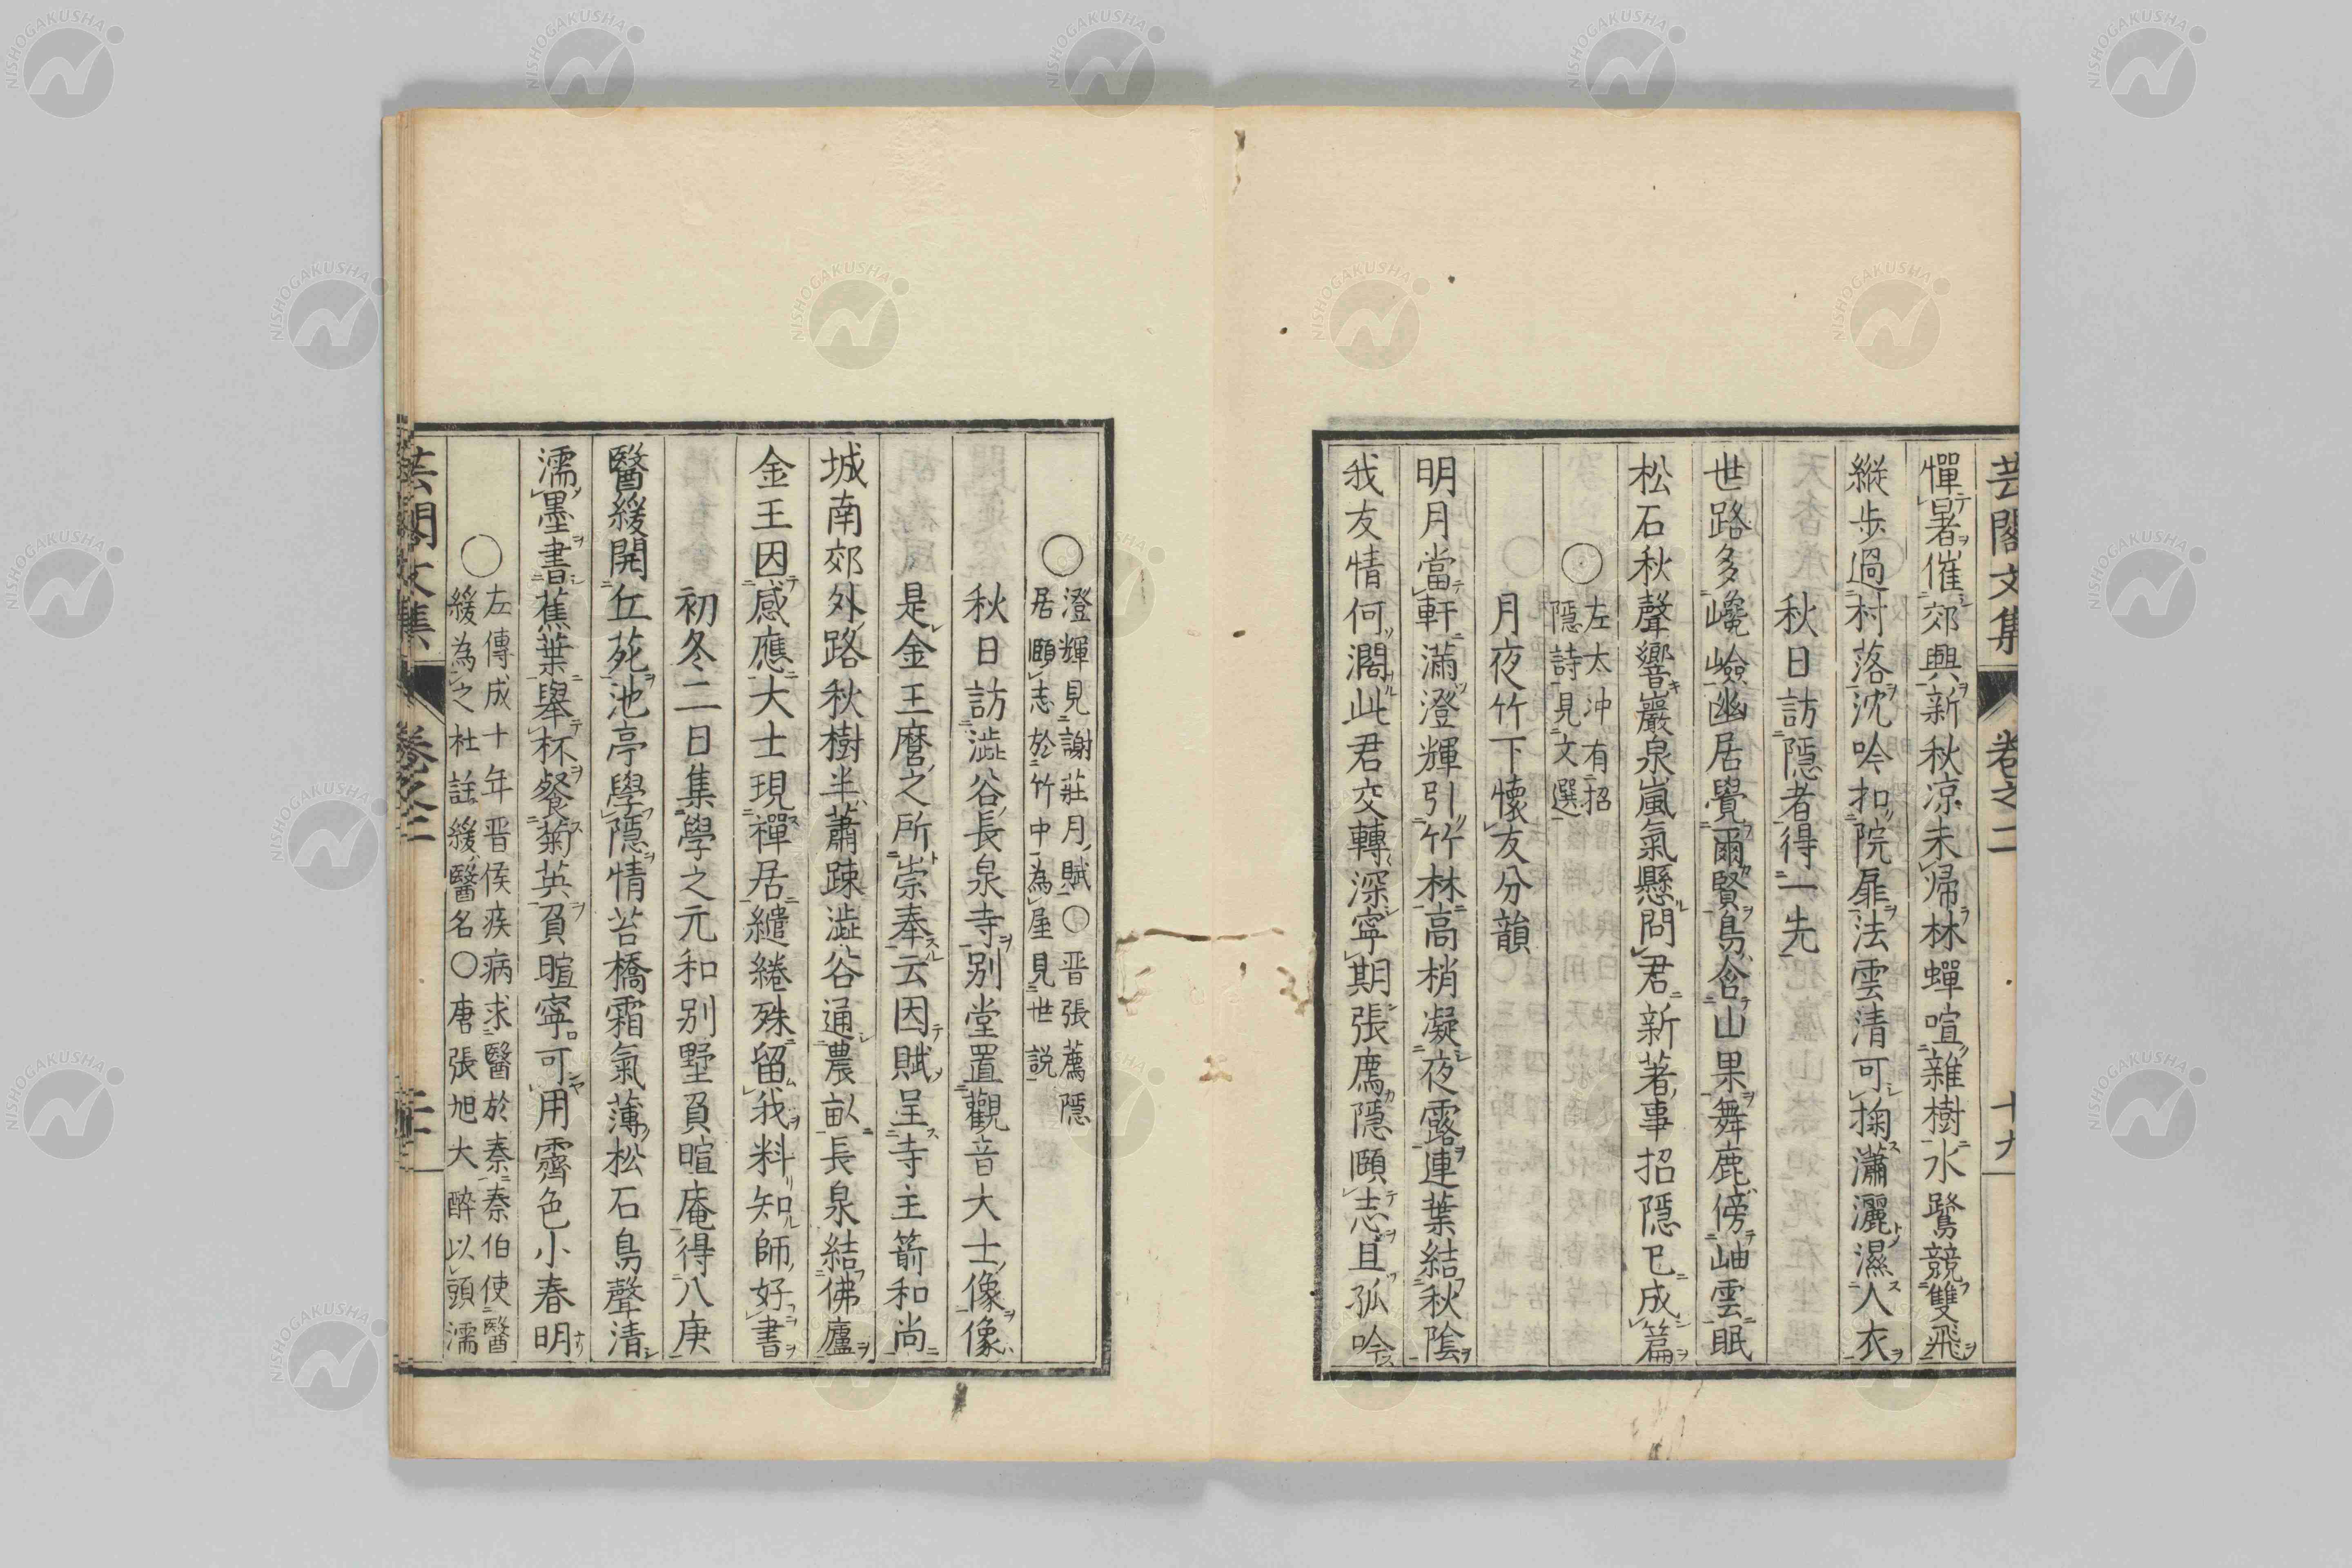 芸閣文集　卷之二　十九
憚暑催郊興新秋凉未歸林蟬喧雜樹水鷺競雙飛
縱步過村落沈吟扣院扉法雲清可掬瀟灑濕人衣
秋日訪隱者得一先
世路多巉嶮幽居覺爾賢鳥含山果舞鹿傍岫雲眠
松石秋聲響巖泉嵐氣懸問君新著事招隱已成篇
○左太沖有招
隱詩見文選
月夜竹下懷友分韻
明月當軒滿澄輝引竹林高梢凝夜露連葉結秋陰
我友情何濶此君交轉深寧期張廌隱頤志且孤吟
○澄輝見謝莊月賦○晋張薦隱
居頤志於竹中為屋見世説
秋日訪澁谷長泉寺別堂置觀音大士像像
是金王麿之所崇奉云因賦呈寺主箭和尚
城南郊外路秋樹半蕭踈澁谷通農畝長泉結佛廬
金王因感應大士現禪居繾綣殊留我料知師好書
初冬二日集學之元和別墅負暄庵得八庚
醫緩開丘苑池亭學隱情苔橋霜氣薄松石鳥聲清
濡墨書蕉葉舉杯餐菊英負暄寧可用霽色小春明
○左傳成十年晋侯疾病求醫於秦秦伯使醫
緩為之杜註緩醫名○唐張旭大醉以頭濡
芸閣文集　卷之二